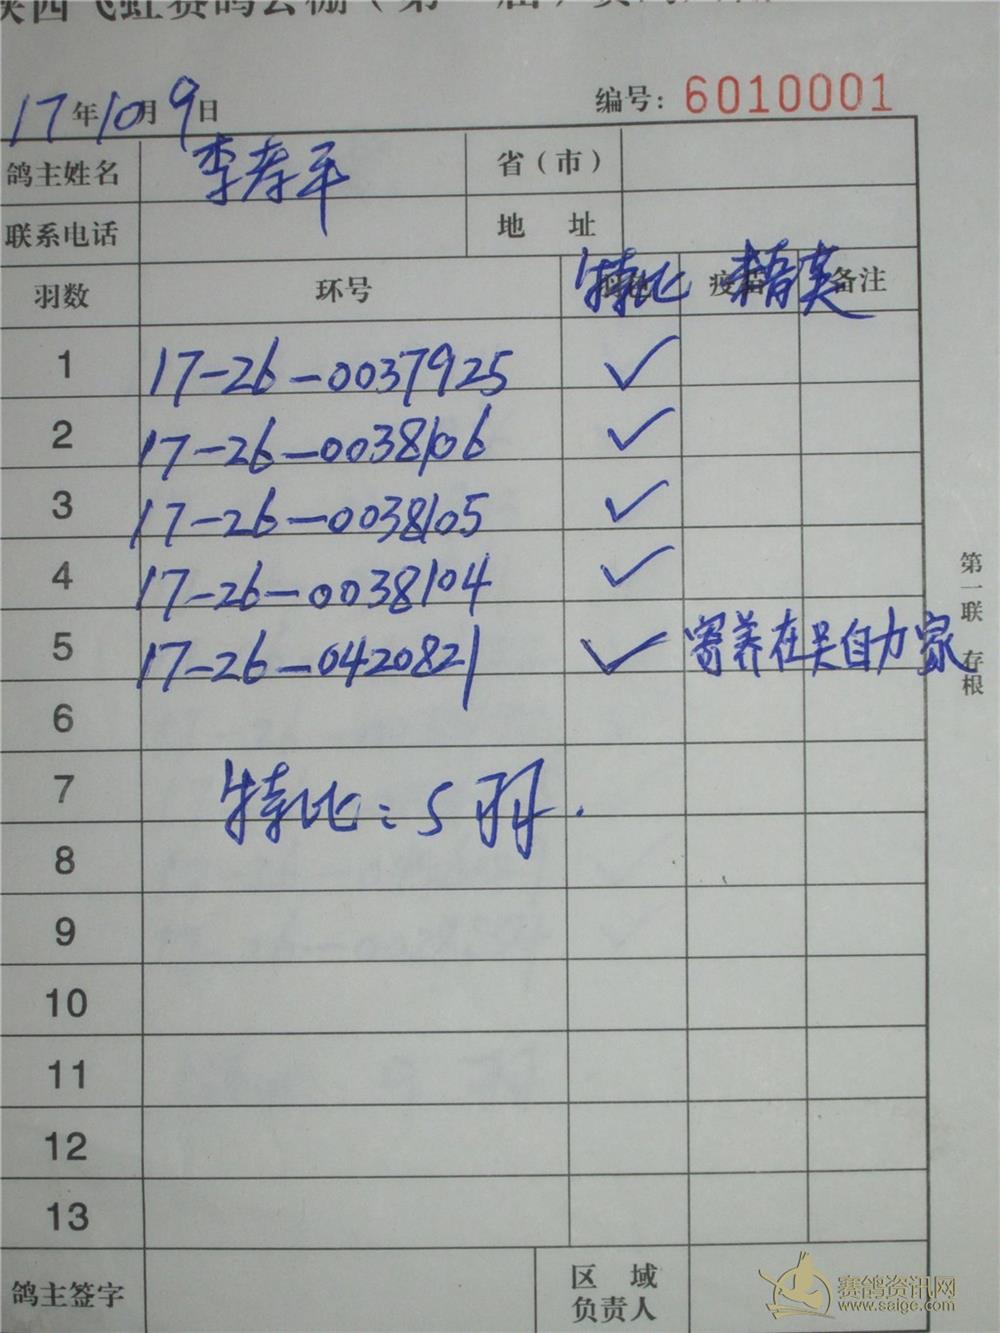 陕西飞虹赛鸽公棚（第 届）
17年10月9日 编号：6010001
鸽主姓名 李孝平 省（市）
联系电话 地 址
羽数 环号 特比 疫苗 精英 备注
1 17-26-0037925 ✓
2 17-26-0038106 ✓
3 17-26-0038105 ✓
4 17-26-0038104 ✓
5 17-26-0420821 ✓ 寄养在吴自力家
6
7 特比：5羽.
8
9
10
11
12
13
鸽主签字 区域负责人
第一联 存根
赛鸽资讯网
www.saigc.com